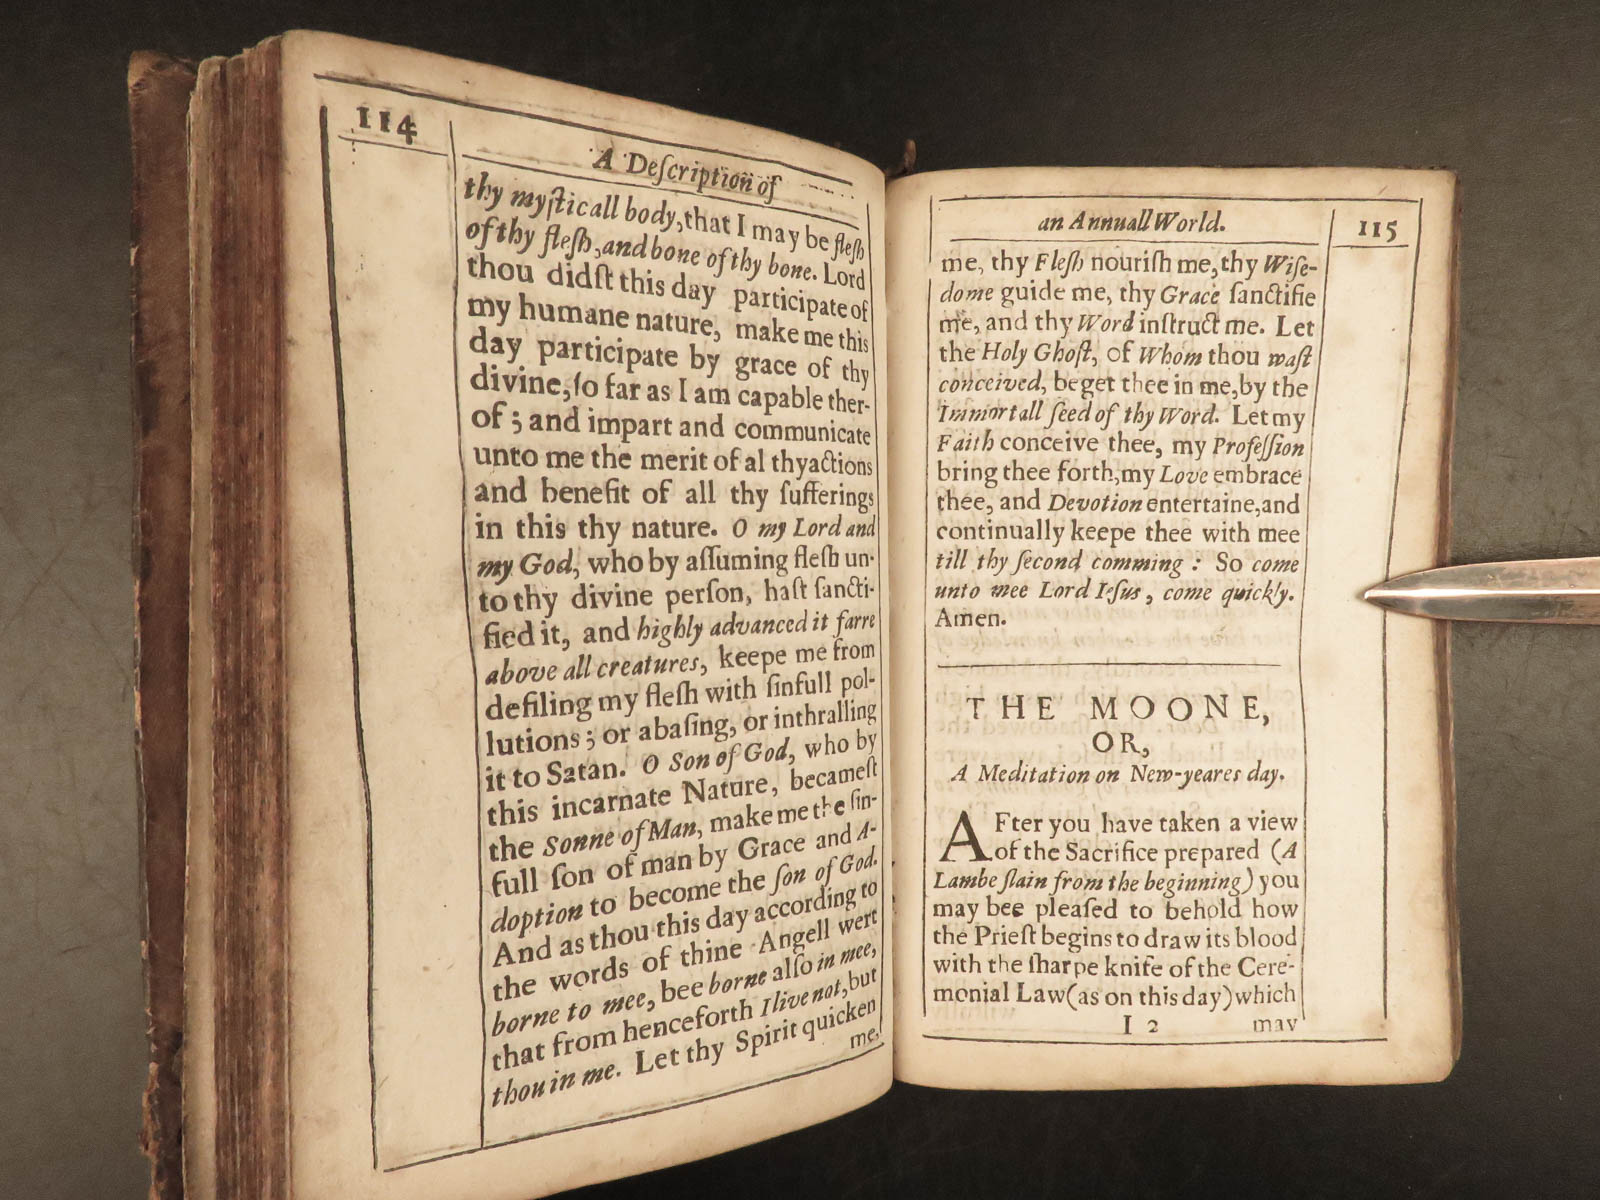 114
A Deſcription of
thy myſticall body, that I may be fleſh
of thy fleſh, and bone of thy bone. Lord
thou didſt this day participate of
my humane nature, make me this
day participate by grace of thy
divine, ſo far as I am capable ther-
of; and impart and communicate
unto me the merit of al thy actions
and benefit of all thy ſufferings
in this thy nature. O my Lord and
my God, who by aſſuming fleſh un-
to thy divine perſon, haſt ſancti-
fied it, and highly advanced it farre
above all creatures, keepe me from
defiling my fleſh with ſinfull pol-
lutions; or abaſing, or inthralling
it to Satan. O Son of God, who by
this incarnate Nature, becameſt
the Sonne of Man, make me the ſin-
full ſon of man by Grace and A-
doption to become the ſon of God.
And as thou this day according to
the words of thine Angell wert
borne to mee, bee borne alſo in mee,
that from henceforth I live not, but
thou in me. Let thy Spirit quicken
me,
an Annuall World.
115
me, thy Fleſh nouriſh me, thy Wiſe-
dome guide me, thy Grace ſanctifie
me, and thy Word inſtruct me. Let
the Holy Ghoſt, of Whom thou waſt
conceived, beget thee in me, by the
Immortall ſeed of thy Word. Let my
Faith conceive thee, my Profeſſion
bring thee forth, my Love embrace
thee, and Devotion entertaine, and
continually keepe thee with mee
till thy ſecond comming: So come
unto mee Lord Ieſus, come quickly.
Amen.
THE MOONE,
OR,
A Meditation on New-yeares day.
AFter you have taken a view
of the Sacrifice prepared (A
Lambe ſlain from the beginning) you
may bee pleaſed to behold how
the Prieſt begins to draw its blood
with the ſharpe knife of the Cere-
monial Law (as on this day) which
I 2
may